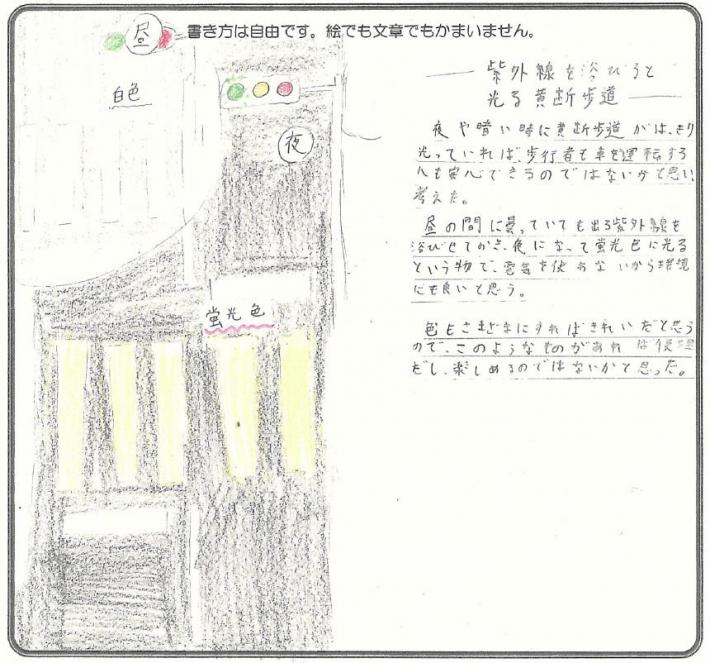 書き方は自由です。絵でも文章でもかまいません。
昼
白色
夜
蛍光色
紫外線を浴びると
光る黄断歩道
夜や暗い時に黄断歩道がはっきり
光っていれば、歩行者も車を運転する
人も安心できるのではないかと思い
考えた。
昼の間に曇っていても出る紫外線を
浴びせておき、夜になって蛍光色に光る
という物で、電気を使わないから環境
にも良いと思う。
色もさまざまにすればきれいだと思う
ので、このようなものがあれば便利
だし、楽しめるのではないかと思った。